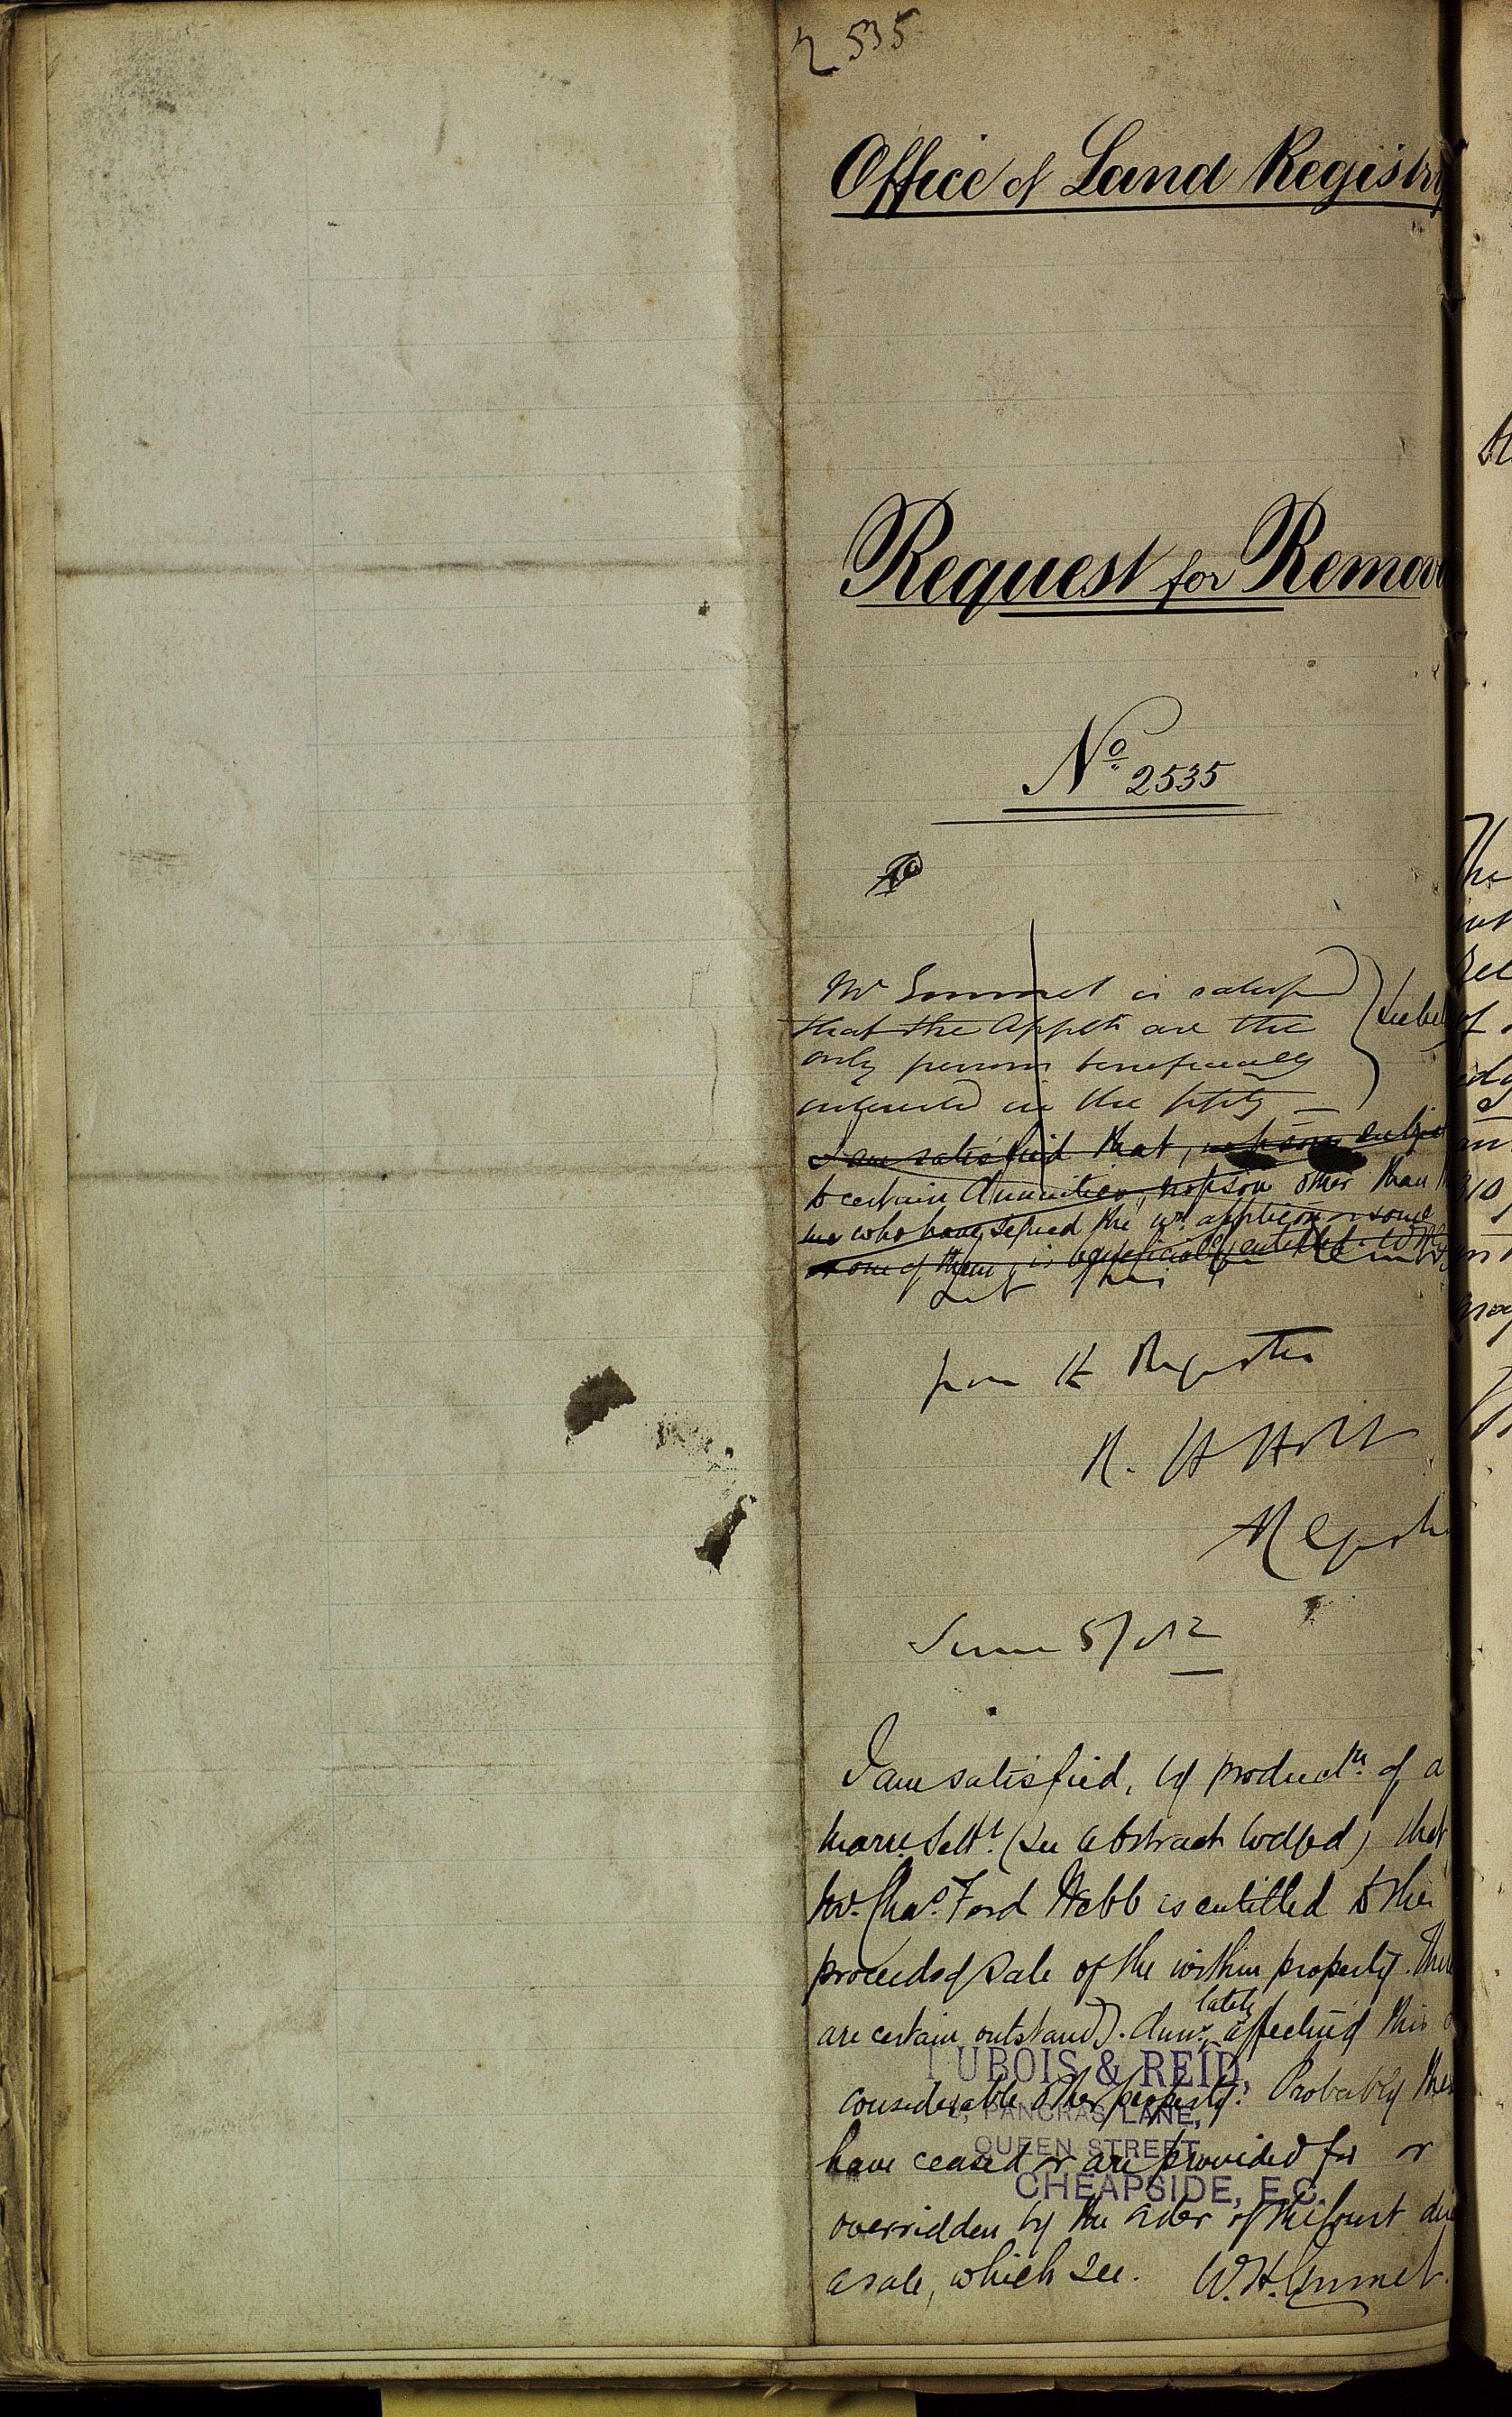 2535
Office of Land Registry
Request for Remov
No 2535
Mr Emmet is satisfd
that the Appts are the
only persons beneficially
interested in the ppty —
I am satisfied that, subject
to certain Annuities, no pson other than
who have signed the wn applicon or some
or one of them, is beneficially entitled.
Let this be removed
from the Register
R. H. Holt
Registr
June 5/82
I am satisfied, by productn. of a
marre. Settt. (see abstract lodged) that
Mr. Chas. Ford Webb is entitled to the
proceeds of sale of the within property. There
are certain outstandg. Annies. lately affecting this &
considerable other property. Probably these
have ceased or are provided for or
overridden by the order of the Court
a sale, which see. W. H. Emmet.
DUBOIS & REID,
PANCRAS LANE,
QUEEN STREET,
CHEAPSIDE, E.C.
The